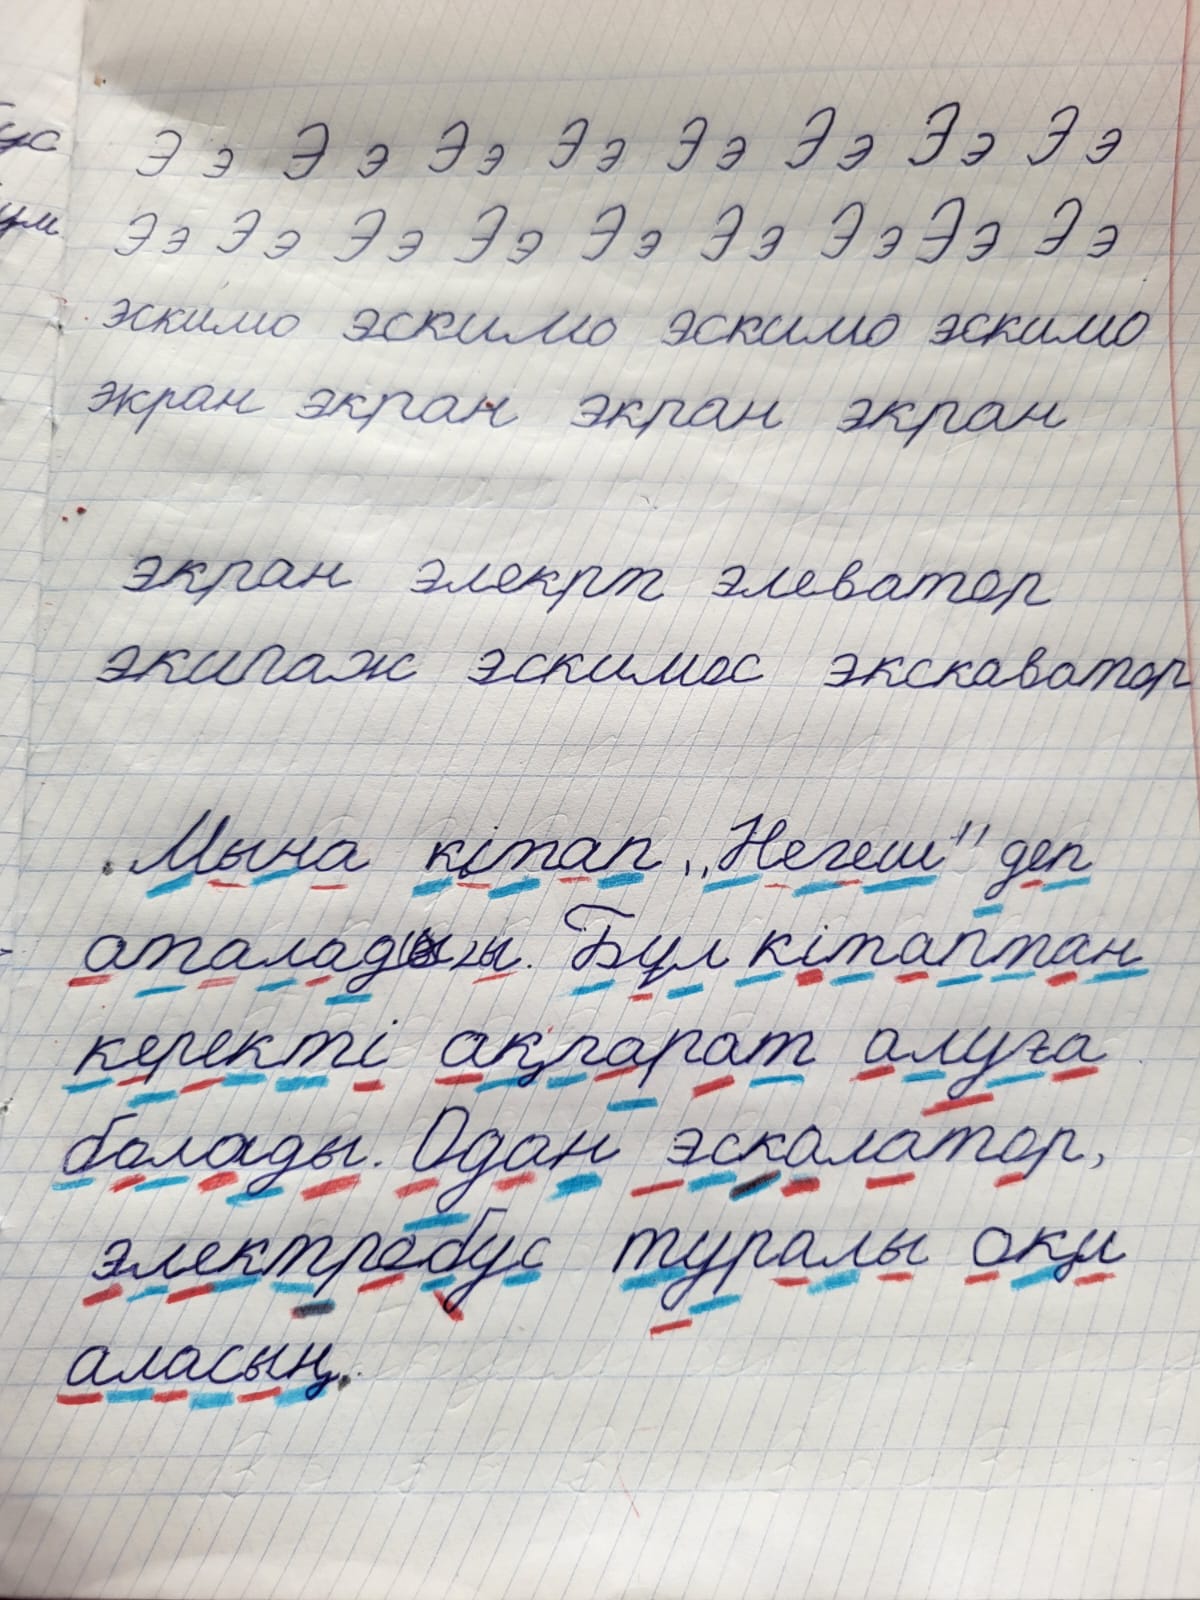 Э э Э э Э э Э э Э э Э э Э э Э э
Э э Э э Э э Э э Э э Э э Э э Э э Э э
эскимо эскимо эскимо эскимо
экран экран экран экран
экран элекрт элеватор
экипаж эскимос экскаватор
Мына кітап „Негеш" деп
аталады. Бұл кітаптан
керекті ақпарат алуға
болады. Одан эскалатор,
электробус туралы оқи
аласың.